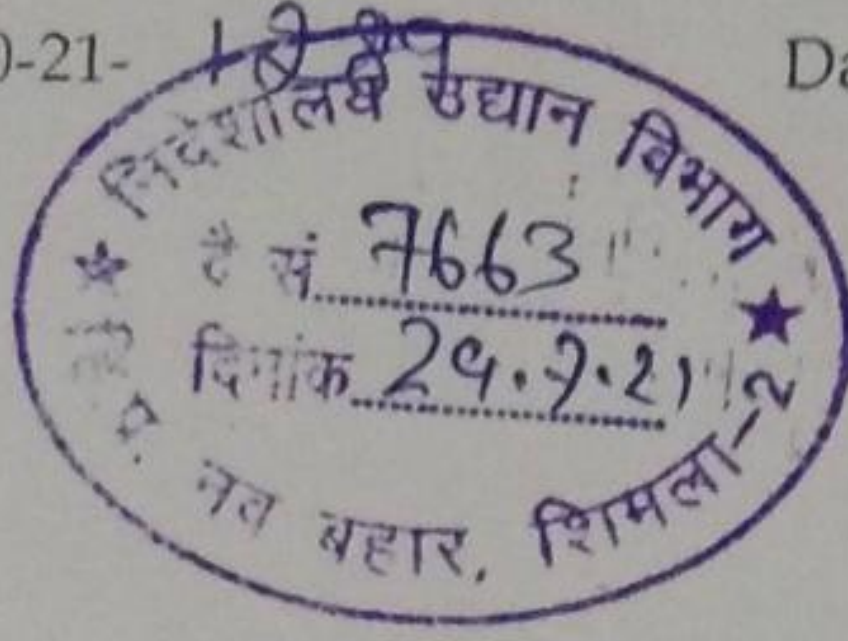 0-21-
Da
निदेशालय उद्यान विभाग
सं. 7663
दिनांक 29.7.21
हि. प. नव बहार, शिमला-2